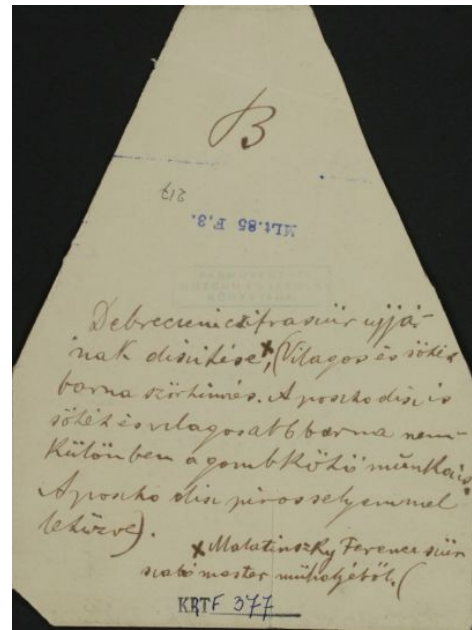 B
217
MLt.85 F,3.
Debreceni cifraszűr ujjá-
nak diszitése, x (Világos és sötét
barna szőrhimzés. A poszko disz is
sötét és világosabb barna nem-
különben a gombkötő munka is.
A poszko disz piros selyemmel
lehúzve).
x Malatinszky Ferenc szűr
szabó mester műhelyéből. (
KRTF 377